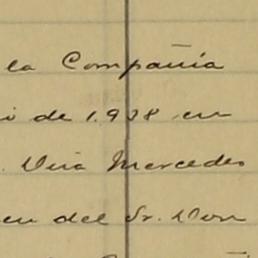 la Compañia
i de 1.908 en
. Mercedes
en del Sr. Don